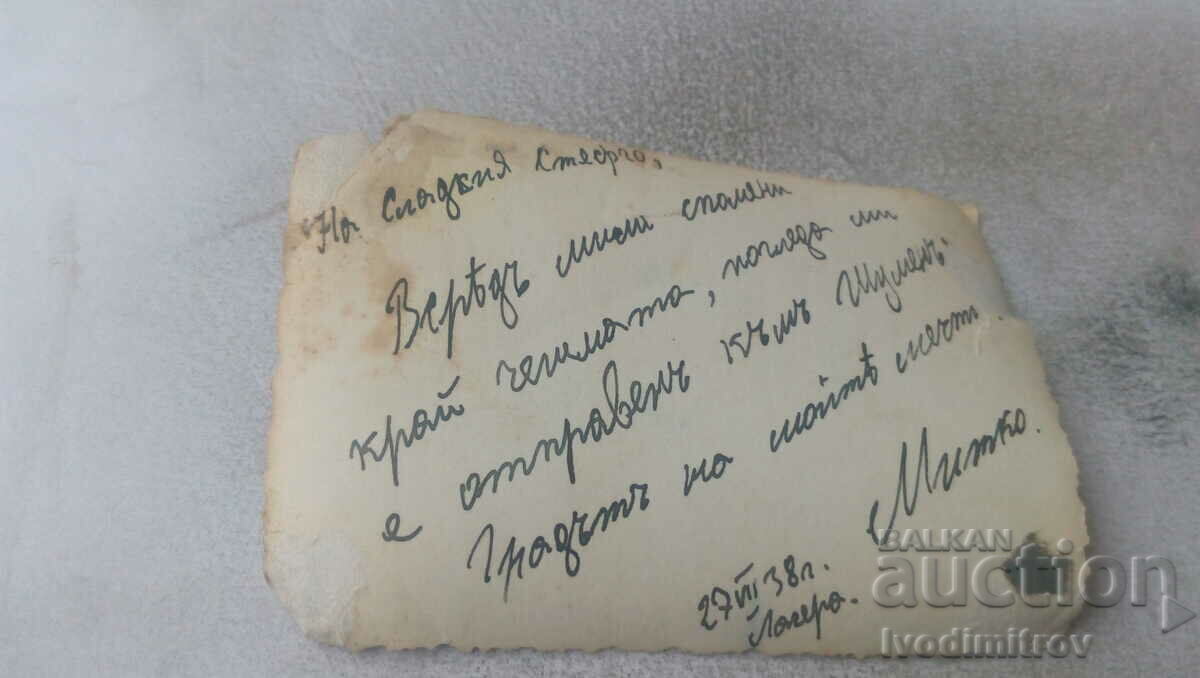 На Сладкия Стефчо,
Верѣдъ мили спомени
край чешмата, погледа ми
е отправенъ къмъ Шуменъ.
Градътъ на моитѣ мечти.
Митко.
27 VII 38 г.
Лагера.
BALKAN
auction
Ivodimitrov